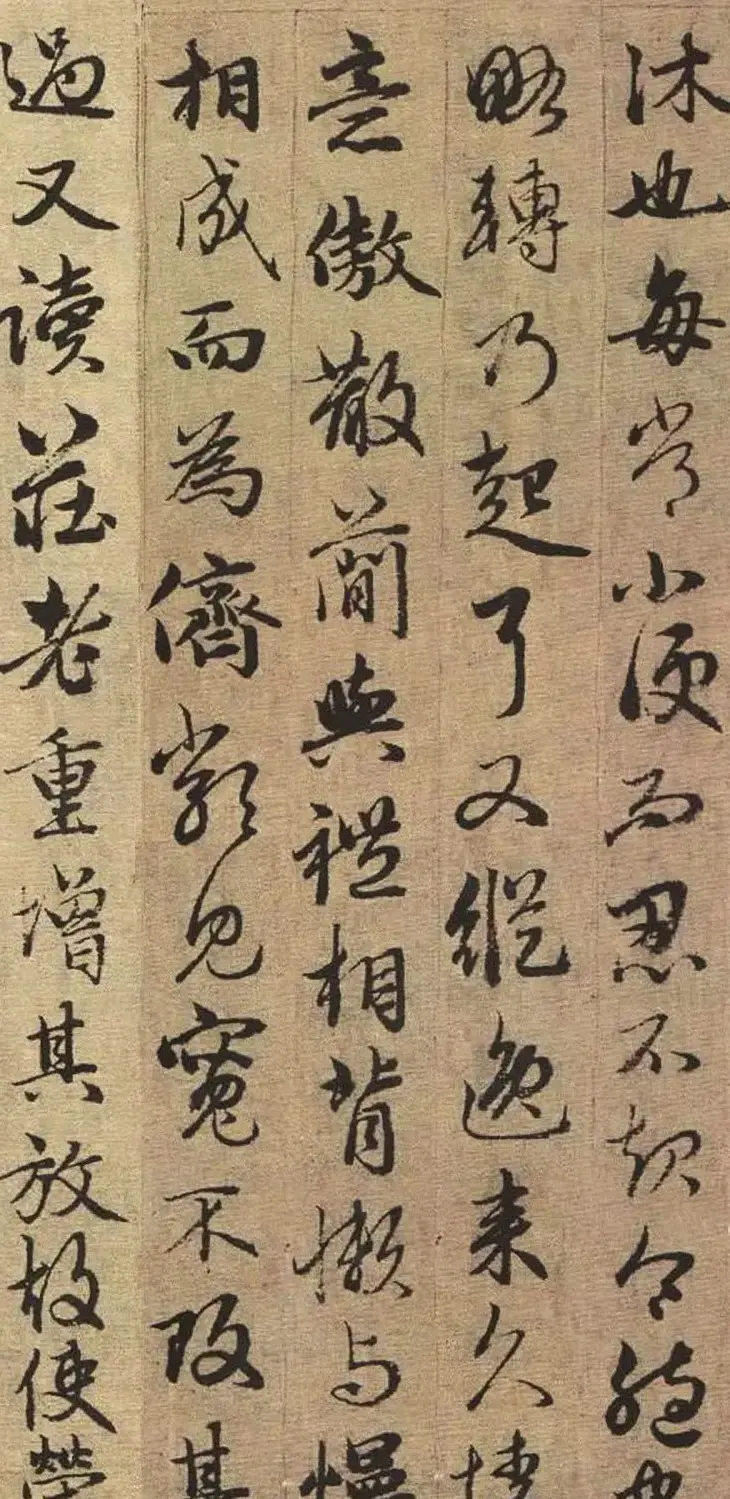 沐也每常小便而忍不起令胞
略轉乃起耳又縱逸来久情
意傲散簡與禮相背懶与慢
相成而為儕類見寬不攻其
過又讀莊老重增其放故使榮